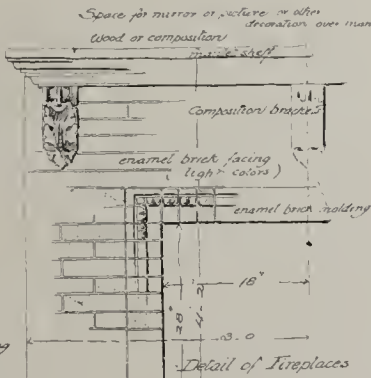 Space for mirror or picture or other
decoration over man
Wood or composition
mantel shelf
Composition brackets
enamel brick facing
(light colors)
enamel brick molding
18"
28"
3-0
Detail of Fireplaces